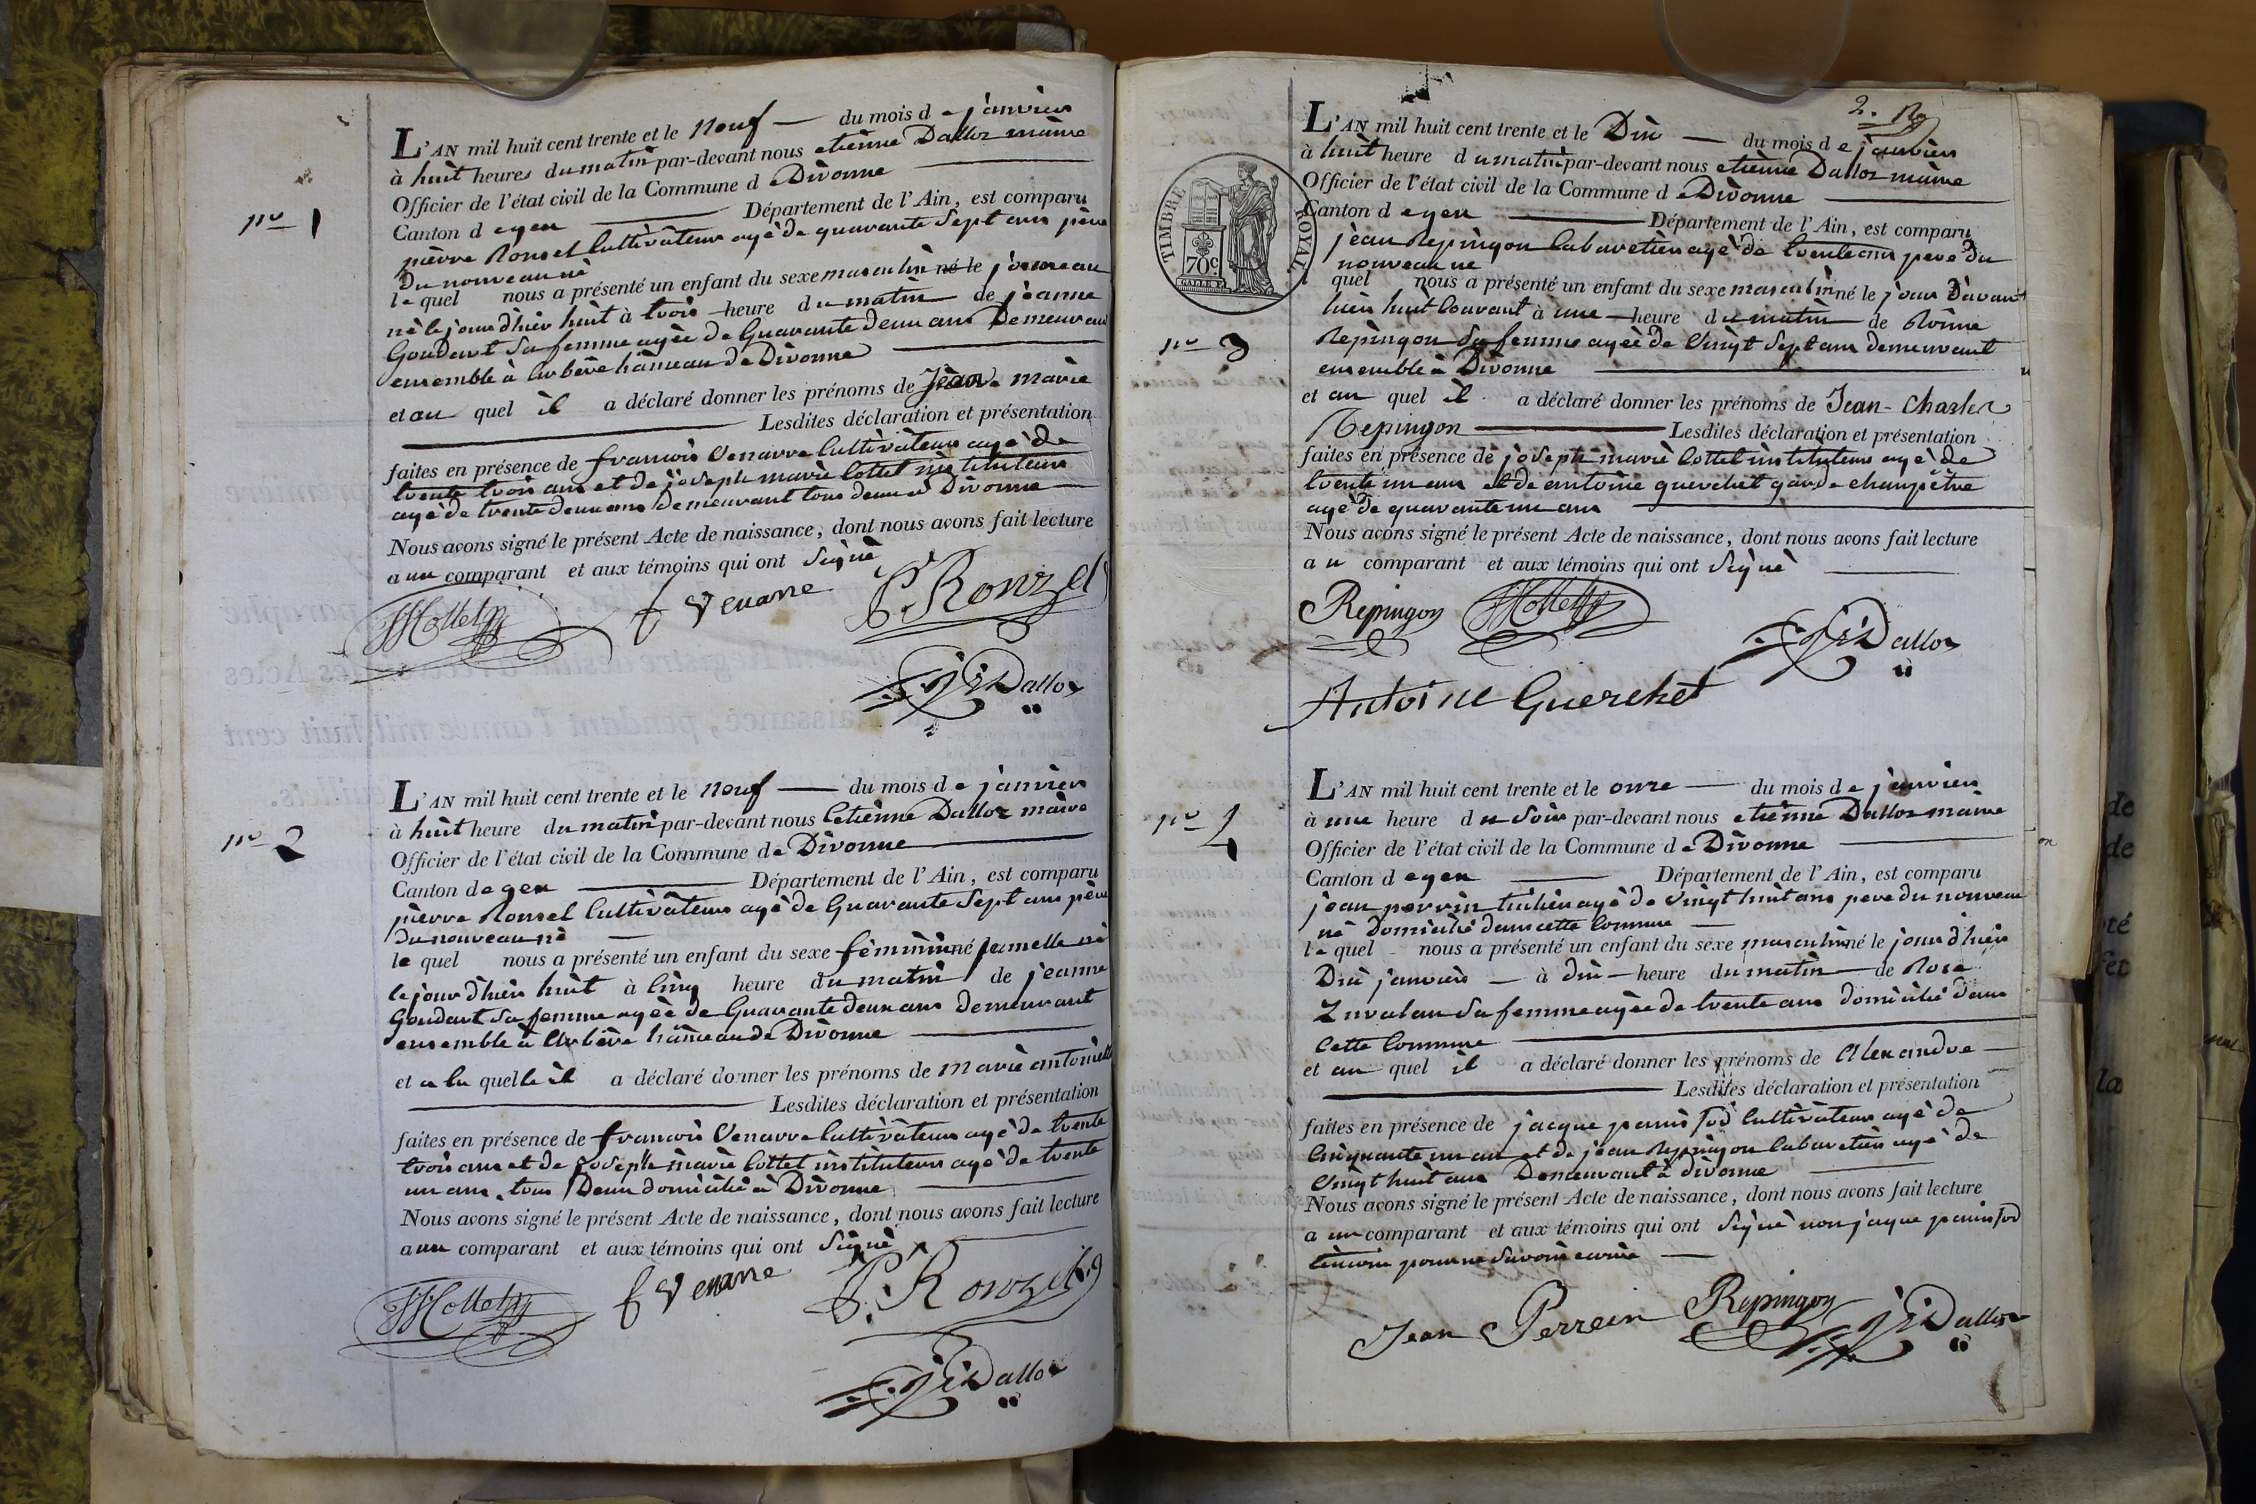 n° 1
L'AN mil huit cent trente et le neuf du mois de janvier
à huit heures du matin par-devant nous etiènne Dalloz màire
Officier de l'état civil de la Commune de Divonne
Canton de gex Département de l'Ain, est comparu
pièrre Ronzel Cultivàteur agé de quarante Sept ans père
du nouveau né
le quel nous a présenté un enfant du sexe masculin né le
né le jour d'hièr huit à trois heure du matin de jeanne
Goudard Sa femme agée de Quarante deux ans Demeurant
ensemble à Arbère hàmeau de Divonne
et au quel il a déclaré donner les prénoms de Jean marie
Lesdites déclaration et présentation
faites en présence de francois Venarre Cultivàteur agé de
trente trois ans et de joseph marie Cottet instituteur
agé de trente deux ans Demeurant tous deux à Divonne
Nous avons signé le présent Acte de naissance, dont nous avons fait lecture
a un comparant et aux témoins qui ont Signé
JMCottet f Venarre P. Ronzel
Dalloz
n° 2
L'AN mil huit cent trente et le neuf du mois de janvier
à huit heure du matin par-devant nous Etiènne Dalloz màire
Officier de l'état civil de la Commune de Divonne
Canton de gex Département de l'Ain, est comparu
pièrre Ronzel Cultivàteur agé de Quarante Sept ans père
du nouveau né
le quel nous a présenté un enfant du sexe féminin né jumelle né
le jour d'hièr huit à Cinq heure du matin de jeanne
Goudard Sa femme agée de Quarante deux ans demeurant
ensemble à Arbère hàmeau de Divonne
et a la quelle il a déclaré donner les prénoms de marie antoinette
Lesdites déclaration et présentation
faites en présence de francois Venarre Cultivàteur agé de trente
trois ans et de Joseph màrie Cottet instituteur agé de trente
un ans, tous Deux domicilié à Divonne
Nous avons signé le présent Acte de naissance, dont nous avons fait lecture
a un comparant et aux témoins qui ont Signé
JMCottet f Venarre P. Ronzel
Dalloz
2.
TIMBRE ROYAL
70c
n° 3
L'AN mil huit cent trente et le Dix du mois de janvier
à huit heure du matin par-devant nous etiènne Dalloz màire
Officier de l'état civil de la Commune de Divonne
Canton de gex Département de l'Ain, est comparu
jean Repingon Cabaretier agé de trente ans pere du
nouveau né
quel nous a présenté un enfant du sexe masculin né le jour d'avant
hièr huit Courant à une heure du matin de
Repingon Sa femme agée de Vingt Sept ans demeurant
ensemble à Divonne
et au quel il a déclaré donner les prénoms de Jean-Charles
Repingon Lesdites déclaration et présentation
faites en présence de joseph marie Cottet instituteur agé de
trente un ans et de antoine guerchet garde champêtre
agé de quarante un ans
Nous avons signé le présent Acte de naissance, dont nous avons fait lecture
a u comparant et aux témoins qui ont Signé
Repingon JMCottet Dalloz
Antoine Guerchet
n° 4
L'AN mil huit cent trente et le onze du mois de janvier
à une heure du Soir par-devant nous etiènne Dalloz màire
Officier de l'état civil de la Commune de Divonne
Canton de gex Département de l'Ain, est comparu
jean perrin agé de Vingt huit ans pere du nouveau
né domicilié dans cette Commune
le quel nous a présenté un enfant du sexe masculin né le jour d'hièr
Dix janvier à dix heure du matin de Rose
Sa femme agée de trente ans domicilié dans
Cette Commune
et au quel il a déclaré donner les prénoms de Alexandre
Lesdites déclaration et présentation
faites en présence de jacque Cultivàteur agé de
Cinquante un an et de jean Repingon Cabaretier agé de
Vingt huit ans Demeurant à divonne
Nous avons signé le présent Acte de naissance, dont nous avons fait lecture
a un comparant et aux témoins qui ont Signé non jaque
témoin pour ne Savoir écrire
Jean Perrein Repingon Dalloz